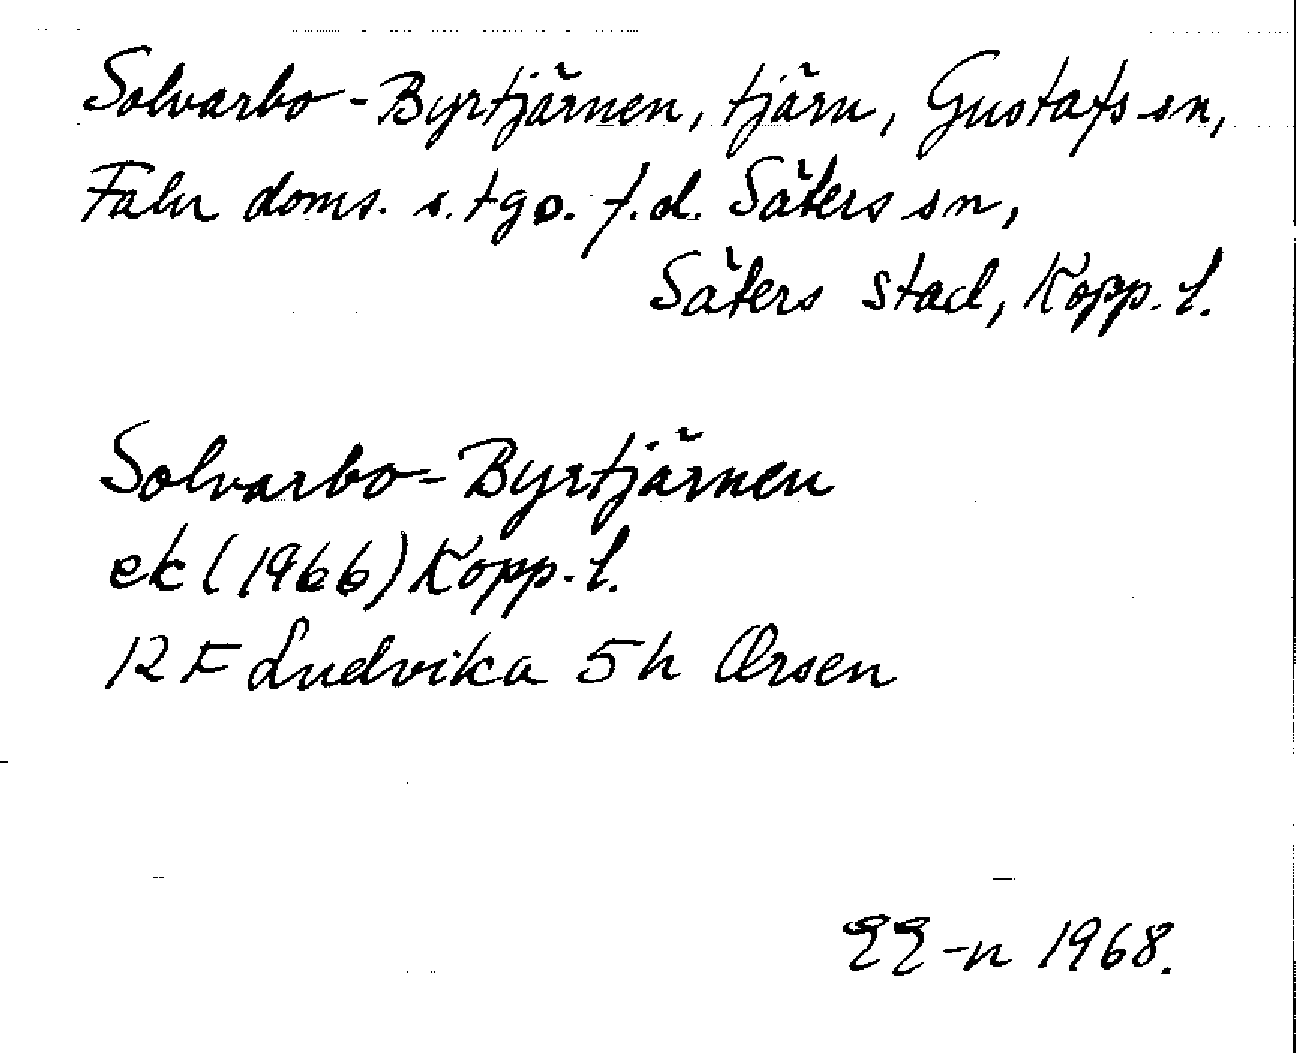 Solvarbo-Byrtjärnen, tjärn, Gustafs sn,
Falu doms. s. tgo. f.d. Säters sn,
Säters stad, Kopp. l.
Solvarbo-Byrtjärnen
ek (1966) Kopp. l.
12 F Ludvika 5 h Orsen
EE-n 1968.